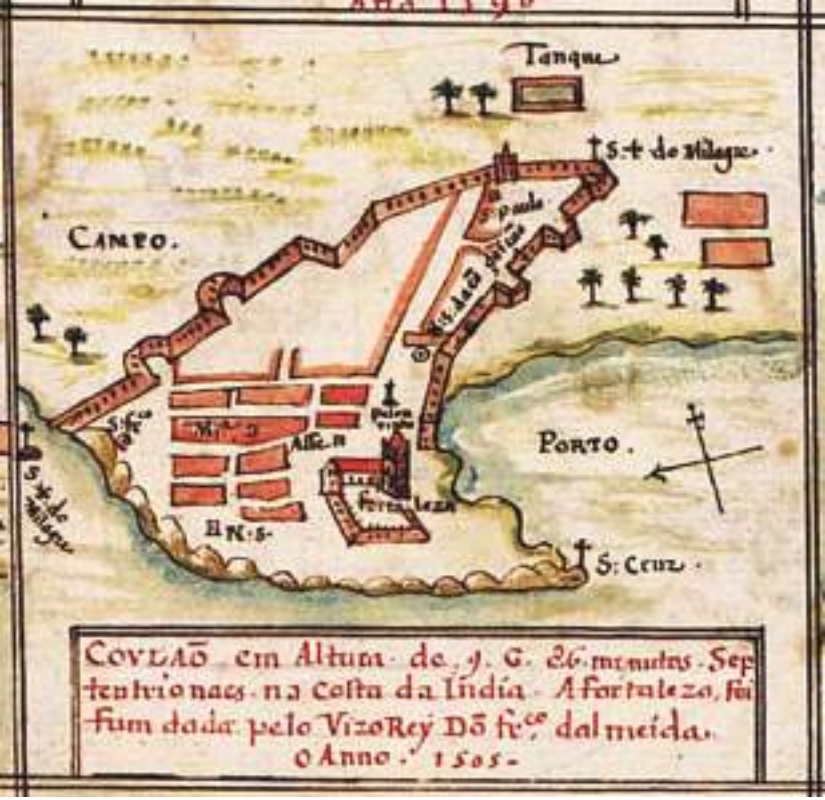 Tanque
S. ✝ do Milagre.
S. Paulo
CAMPO.
S. fco
Miā
Asse
fortaleza
PORTO.
II N. S.
S. ✝ do Milagre
S: Cruz.
COVLAÕ em Altura de .9. G. 26. minutos. Sep
tentrionaes. na costa da India. A fortaleza, foi
fumdada pelo VizoRey Dõ frco. dalmeida.
O Anno. 1505-